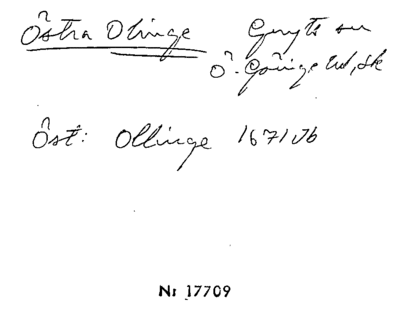 Östra Olinge Gryts sn
Ö. Göinge hd, Sk
Öst: Ollinge 1671 Jb
Nr 17709